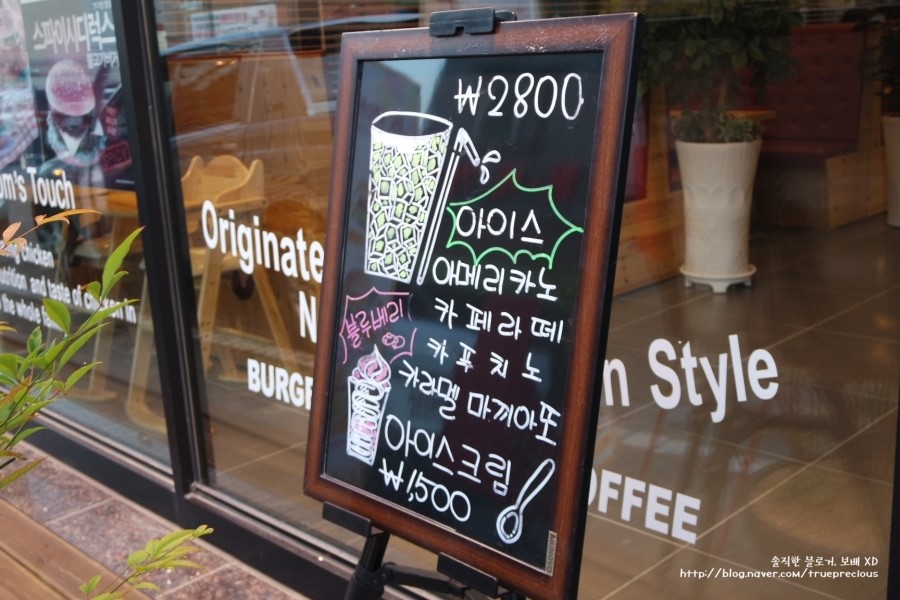 스파이시디럭스
om's Touch
chicken
nutrition and taste of chicken in
the whole
Originate
N
BURGE
₩2800
아이스
아메리카노
카페라떼
카푸치노
카라멜 마끼아또
블루베리
아이스크림
₩1,500
n Style
OFFEE
솔직한 블로거, 보배 XD
http://blog.naver.com/trueprecious